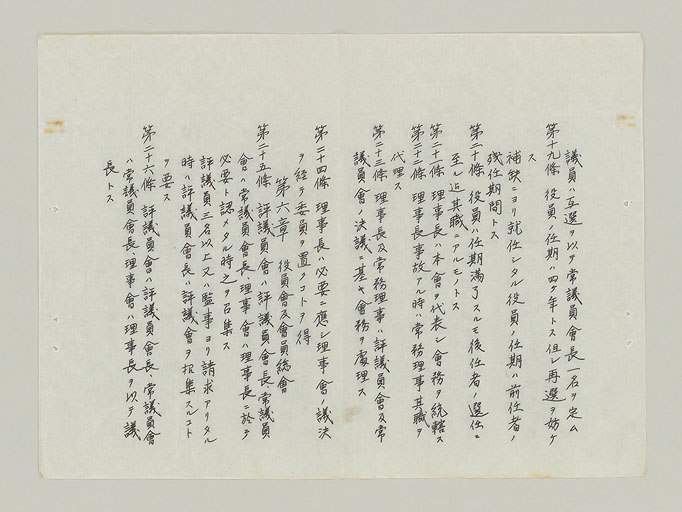 議員ハ互選ヲ以テ常議員會長一名ヲ定ム
第十九條 役員ノ任期ハ四ケ年トス但シ再選ヲ妨ケ
ス
補缺ニヨリ就任シタル役員ノ任期ハ前任者ノ
残任期間トス
第二十條 役員ハ任期滿了スルモ後任者ノ選任ニ
至ル迄其職ニアルモノトス
第二十一條 理事長ハ本會ヲ代表シ會務ヲ統轄ス
第二十二條 理事長事故アル時ハ常務理事其職ヲ
代理ス
第二十三條 理事長及常務理事ハ評議員會及常
議員會ノ決議ニ基キ會務ヲ處理ス
第二十四條 理事長ハ必要ニ應シ理事會ノ議決
ヲ経テ委員ヲ置クコトヲ得
第六章 役員會及會員総會
第二十五條 評議員會ハ評議員會長、常議員
會ハ常議員會長、理事會ハ理事長ニ於テ
必要ト認メタル時之ヲ召集ス
評議員三名以上又ハ監事ヨリ請求アリタル
時ハ評議員會長ハ評議會ヲ招集スルコト
ヲ要ス
第二十六條 評議員會ハ評議員會長、常議員會
ハ常議員會長、理事會ハ理事長ヲ以テ議
長トス